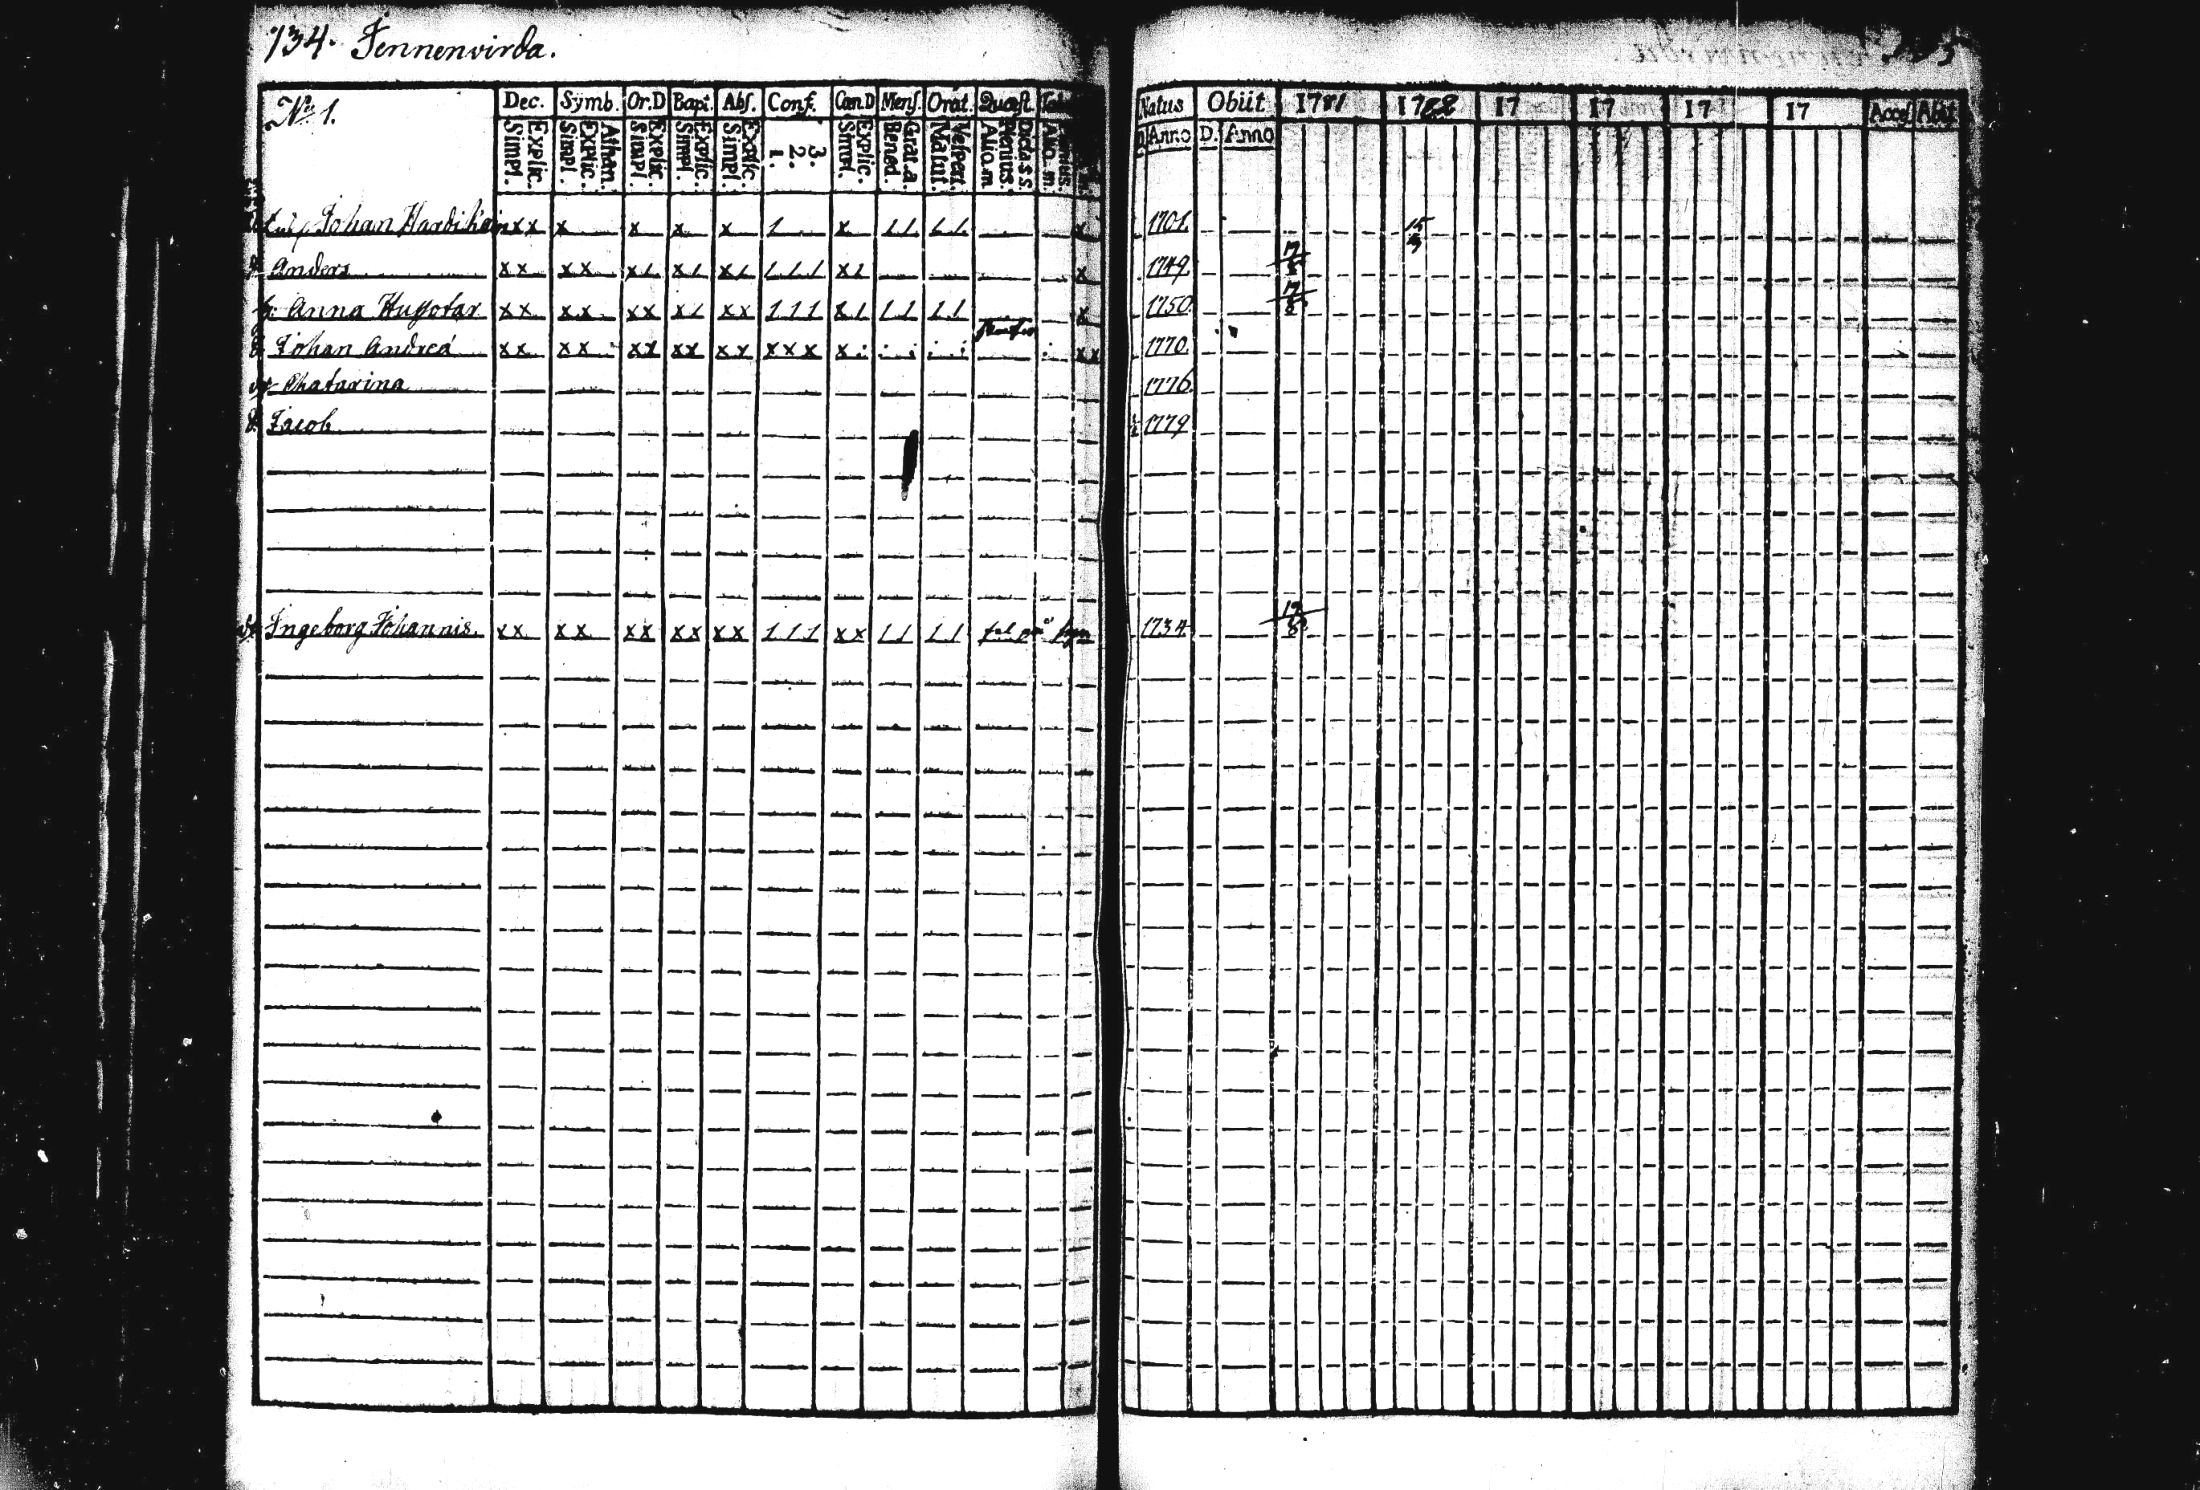 734. Jennenvirda.
No 1. Dec. Symb. Or.D Bapt. Abs. Conf. Cœn.D Mens. Orat. Quæst. Natus Obiit 1781 1782 17 17 17 17 Access Abiit
Simpl. Explic. Simpl. Explic. Athan. Simpl. Explic. Simpl. Explic. Simpl. Explic. 1. 2. 3. Simpl. Explic. Bened. Grat. a. Matut. Vespert. Alio. m. Plenius. Dicta S.S. Alio. m. D Anno D. Anno
Johan x x x x x x 1 x 1 1 1 1 x 1701. 15 3
Anders x x x x x 1 x 1 x 1 1 1 1 x 1 x 1749. 17 8
h: Anna x x x x x x x 1 x x 1 1 1 x 1 1 1 1 1 x 1750. 17 8
Johan Andreæ x x x x x x x x x x x x x x x x 1770.
Chatarina 1776.
Jacob 1779
Ingeborg Johannis. x x x x x x x x x x 1 1 1 x x 1 1 1 1 1734 17 8